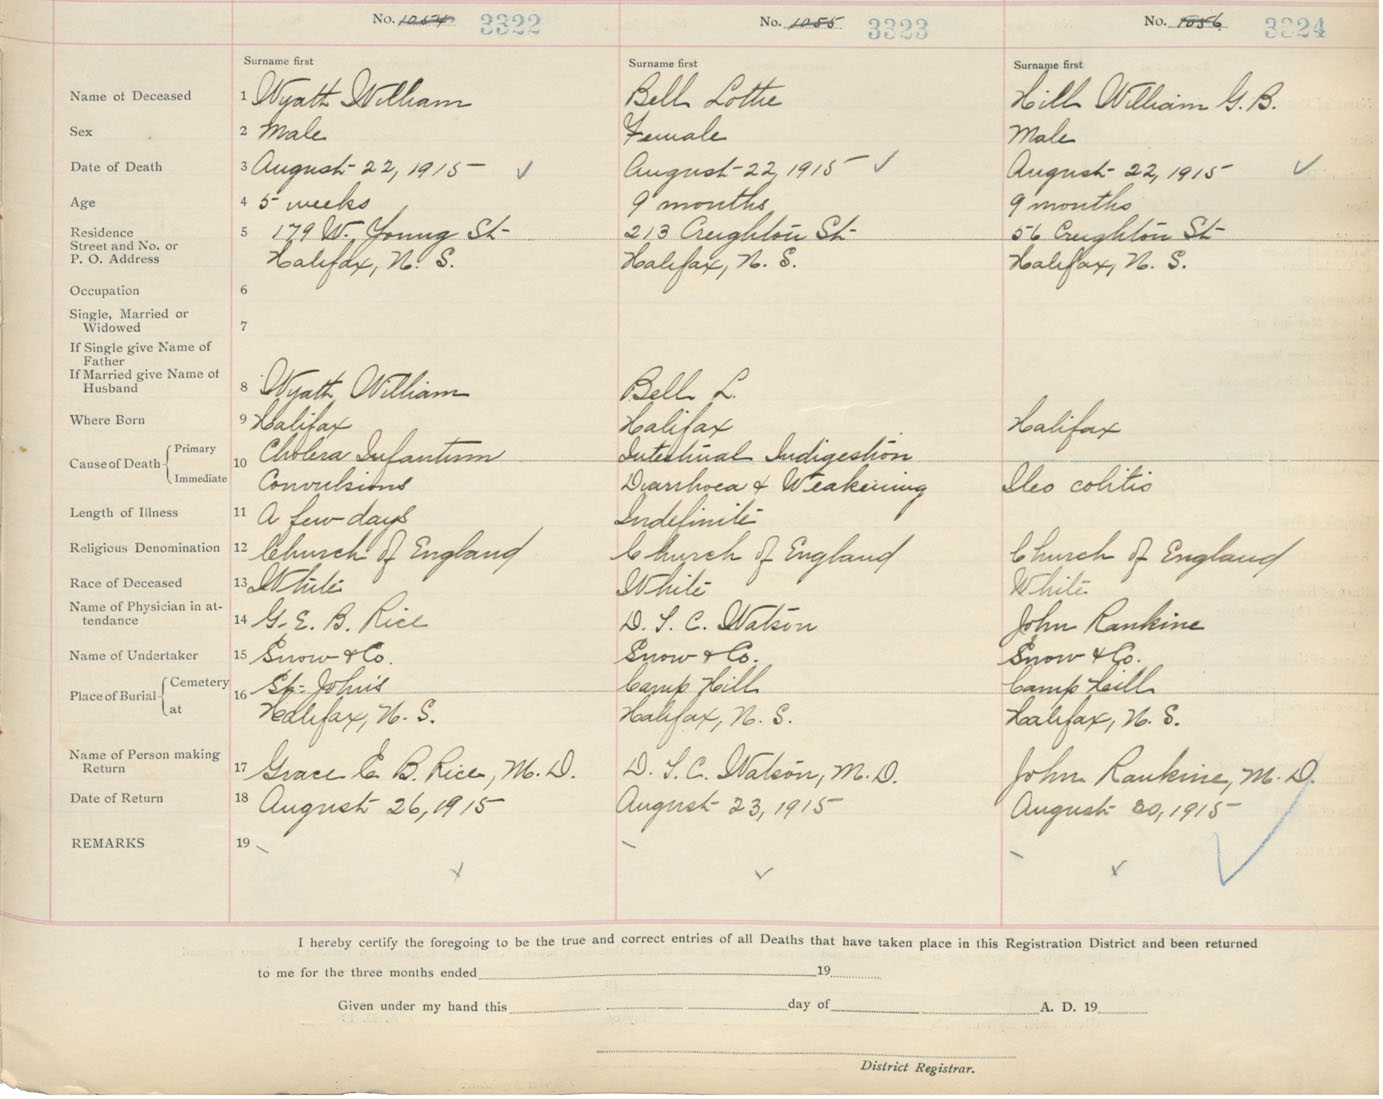 No. 1054 3322 No. 1055 3323 No. 1056 3324
Surname first Surname first Surname first
Name of Deceased 1 Wyatt William Bell Lottie Hill William G. B.
Sex 2 Male Female Male
Date of Death 3 August 22, 1915 August 22, 1915 August 22, 1915
Age 4 5 weeks 9 months 9 months
Residence 5 179 W. Young St 213 Creighton St 56 Creighton St
Street and No. or
P. O. Address Halifax, N. S. Halifax, N. S. Halifax, N. S.
Occupation 6
Single, Married or
Widowed 7
If Single give Name of
Father
If Married give Name of
Husband 8 Wyatt William Bell L.
Where Born 9 Halifax Halifax Halifax
Cause of Death Primary 10 Cholera Infantum Intestinal Indigestion
Immediate Convulsions Diarrhoea & Weakening Ileo colitis
Length of Illness 11 A few days Indefinite
Religious Denomination 12 Church of England Church of England Church of England
Race of Deceased 13 White White White
Name of Physician in at-
tendance 14 G. E. B. Rice D. S. C. Watson John Rankine
Name of Undertaker 15 Snow & Co. Snow & Co. Snow & Co.
Place of Burial Cemetery 16 St. John's Camp Hill Camp Hill
at Halifax, N. S. Halifax, N. S. Halifax, N. S.
Name of Person making
Return 17 Grace E. B. Rice, M. D. D. S. C. Watson, M. D. John Rankine, M. D.
Date of Return 18 August 26, 1915 August 23, 1915 August 30, 1915
REMARKS 19
I hereby certify the foregoing to be the true and correct entries of all Deaths that have taken place in this Registration District and been returned
to me for the three months ended 19
Given under my hand this day of A. D. 19
District Registrar.